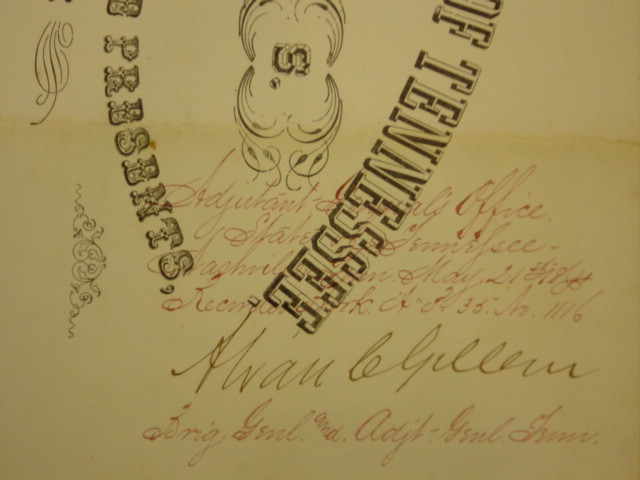 PRESENTS,
S.
OF TENNESSEE
Adjutant General's Office.
State Tennessee-
Nashville Tenn May 21st 1864
Recorded Book "A" P 35. No. 1116
Alvan C Gillem
Brig. Genl. and. Adjt-Genl. Tenn.